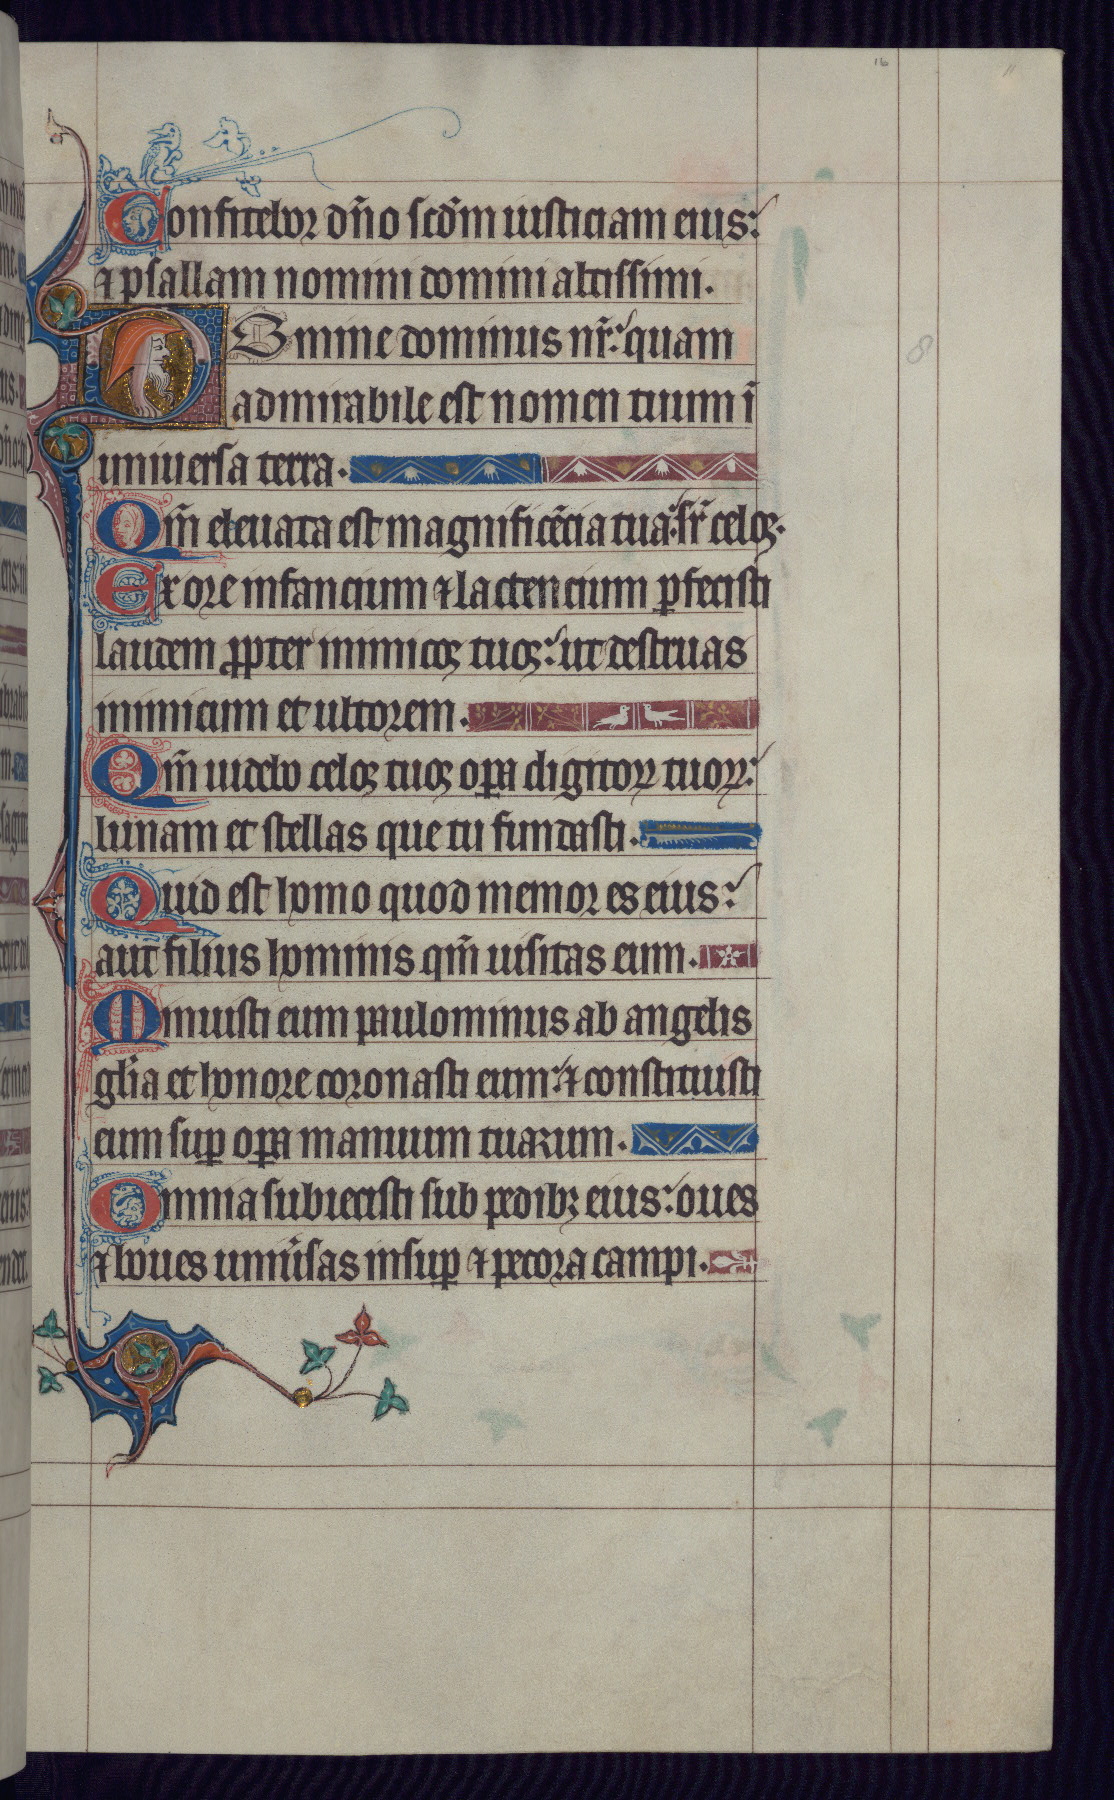 16
11
Confitebor dño scďm iusticiam eius:
⁊ psallam nomini domini altissimi.
Domine dominus nr̃: quam
8
admirabile est nomen tuum ĩ
uniuersa terra.
Qm̃ eleuata est magnificẽcia tua: sr̃ celoꝫ.
Ex ore infancium ⁊ lactencium ꝑfecisti
laudem ꝓpter inimicoꝫ tuoꝫ: ut destruas
inimicum et ultorem.
Qm̃ uidebo celoꝫ tuoꝫ oꝑa digitoꝝ tuoꝝ:
lunam et stellas que tu fundasti.
Quid est homo quod memor es eius:
aut filius hominis qm̃ uisitas eum.
Minuisti eum paulominus ab angelis
gl̃ia et honore coronasti eum: ⁊ constituisti
eum suꝑ oꝑa manuum tuarum.
Omnia subiecisti sub pedibꝫ eius: oues
⁊ boues uniũsas insuꝑ ⁊ pecora campi.